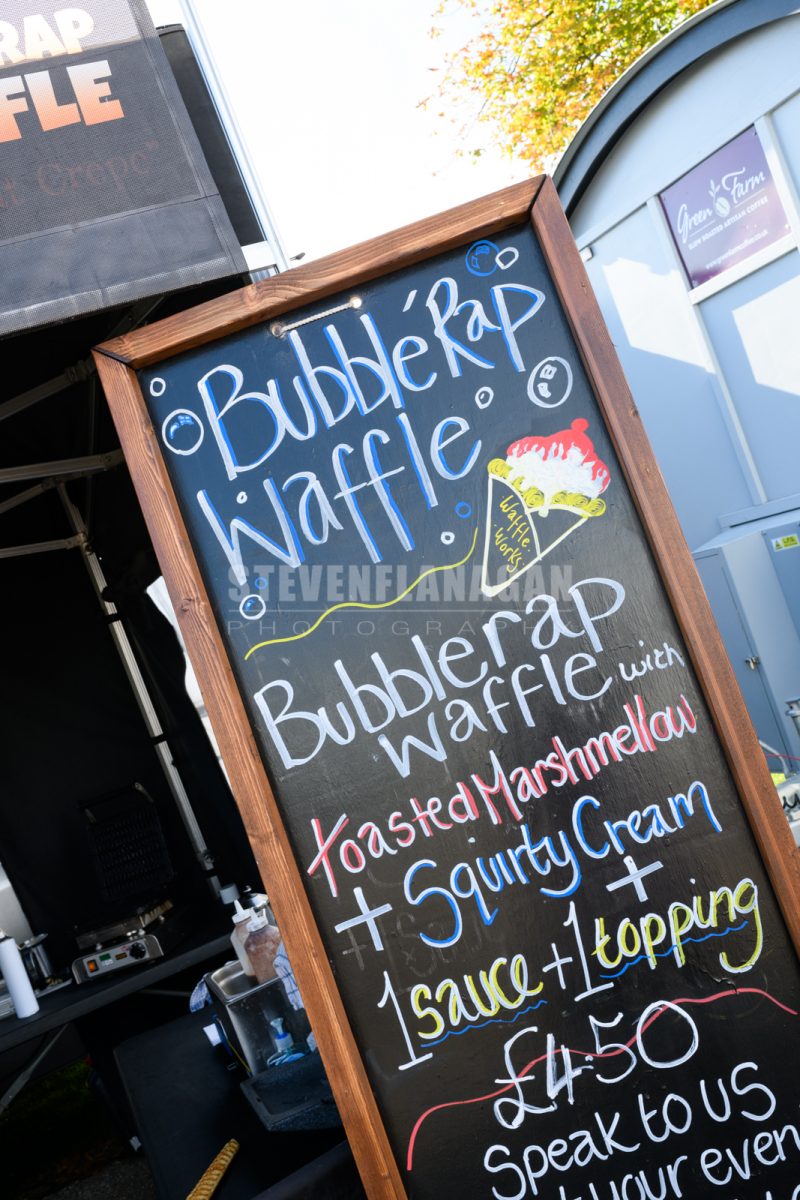 RAP
FFLE
Crepe"
Green Farm
SLOW ROASTED ARTISAN COFFEE
www.greenfarmcoffee.co.uk
Bubble'Rap
Waffle
Waffle
Works
STEVENFLANAGAN
PHOTOGRAPHY
Bubblerap
waffle with
toasted Marshmellow
+ Squirty Cream
+
1 sauce + 1 topping
£4.50
Speak to us
your even